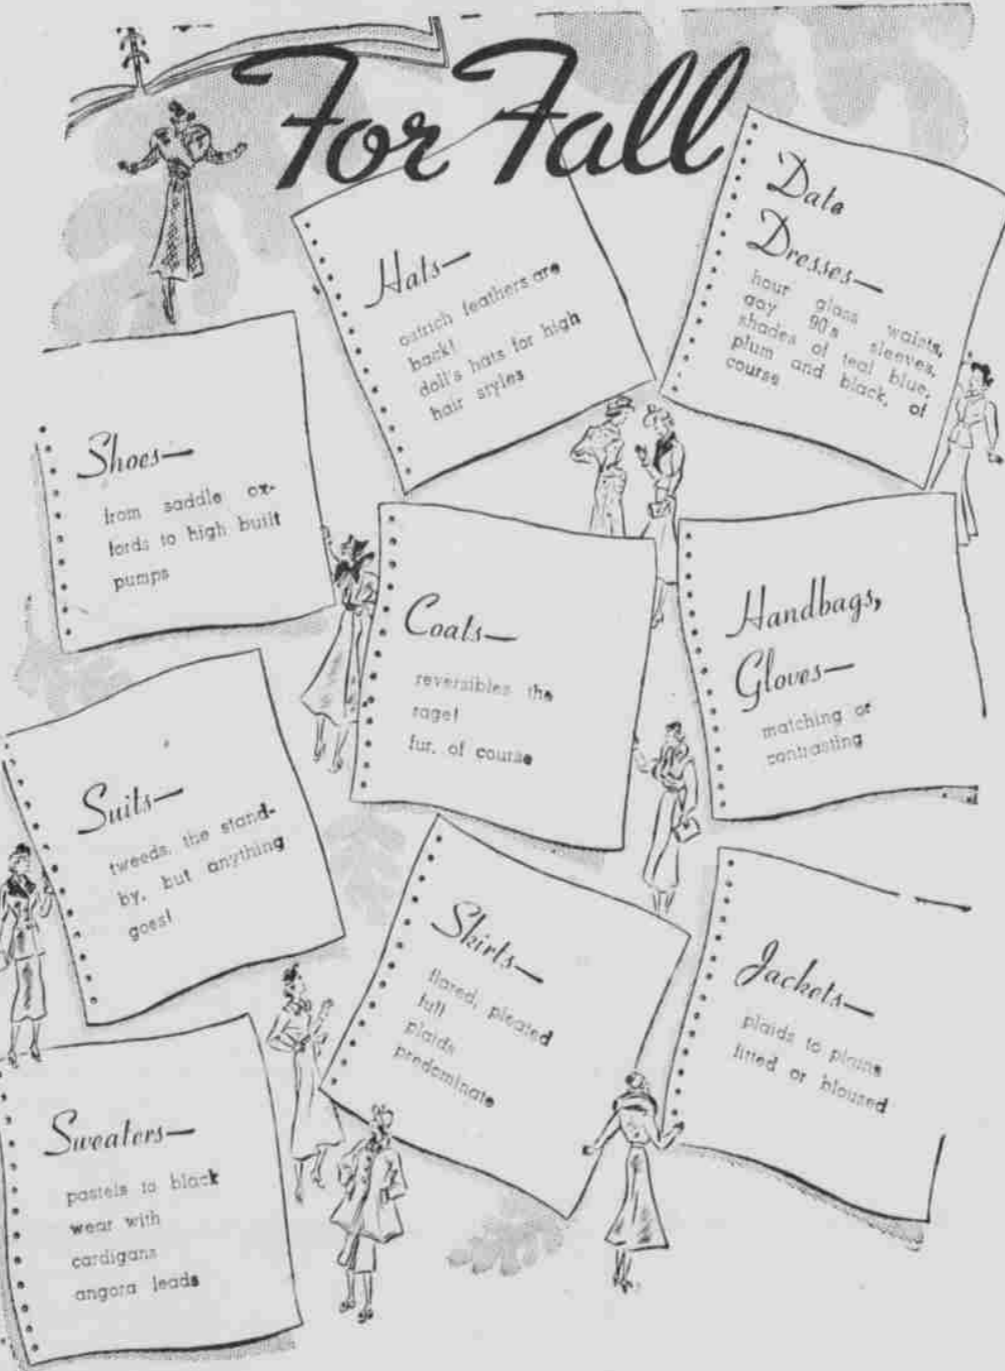 For Fall
Hats—
ostrich feathers are
back!
doll's hats for high
hair styles
Date
Dresses—
hour glass waists,
gay 90's sleeves,
shades of teal blue,
plum and black, of
course
Shoes—
from saddle ox-
fords to high built
pumps
Coats—
reversibles the
rage!
fur, of course
Handbags,
Gloves—
matching or
contrasting
Suits—
tweeds, the stand-
by, but anything
goes!
Skirts—
flared, pleated
full
plaids
predominate
Jackets—
plaids to plains
fitted or bloused
Sweaters—
pastels to black
wear with
cardigans
angora leads